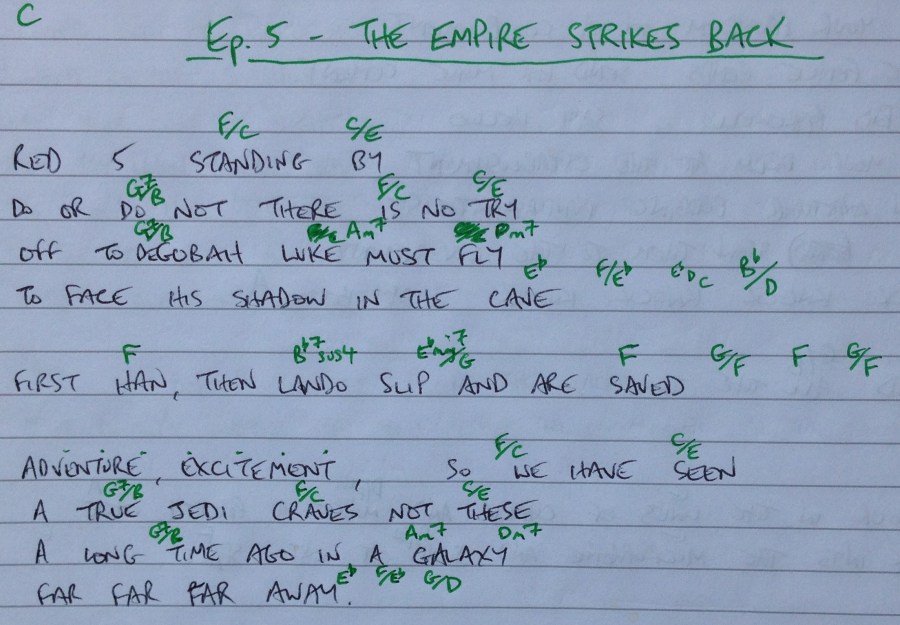 C
Ep. 5 - THE EMPIRE STRIKES BACK
F/C C/E
RED 5 STANDING BY
G7/B F/C C/E
DO OR DO NOT THERE IS NO TRY
G7/B Am7 Dm7
OFF TO DEGOBAH LUKE MUST FLY
E♭ F/E♭ E♭DC B♭/D
TO FACE HIS SHADOW IN THE CAVE
F B♭7sus4 E♭maj7/G F G/F F G/F
FIRST HAN, THEN LANDO SLIP AND ARE SAVED
F/C C/E
ADVENTURE, EXCITEMENT, SO WE HAVE SEEN
G7/B F/C C/E
A TRUE JEDI CRAVES NOT THESE
G7/B Am7 Dm7
A LONG TIME AGO IN A GALAXY
E♭ F/E♭ G/D
FAR FAR FAR AWAY.